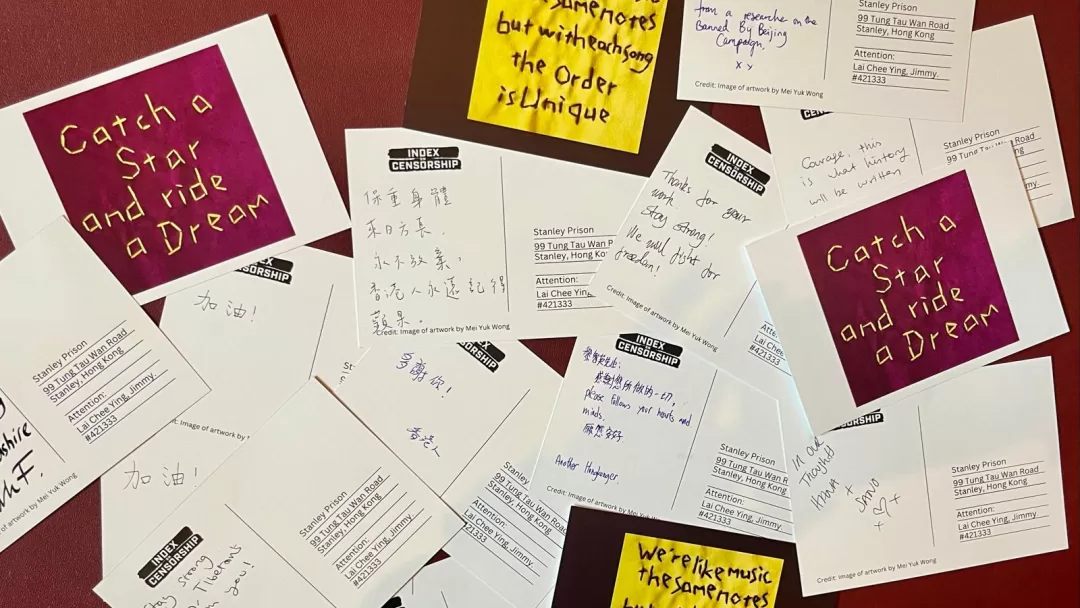 Catch a
Star
and ride
a Dream
same notes
but with each song
the Order
is Unique
from a researcher on the
Banned By Beijing
Campaign.
x y
Credit: Image of artwork by Mei Yuk Wong
Stanley Prison
99 Tung Tau Wan Road
Stanley, Hong Kong
Attention:
Lai Chee Ying, Jimmy.
#421333
INDEX
CENSORSHIP
保重身體
來日方長.
永不放棄,
香港人永遠記得
Credit: Image of artwork by Mei Yuk Wong
Stanley Prison
99 Tung Tau Wan
Stanley, Hong Ko
Attention:
Lai Chee Yin
#421333
INDEX
CENSORSHIP
Thanks for your
work.
Stay strong!
We will fight for
freedom!
Credit: Image of artwork by Mei Yuk Wong
Atte
Lai Chee
#421333
Courage, this
is what history
will be written
Stanley Prison
99 Tung Tau
Catch a
Star
and ride
a Dream
ORSHIP
加油!
Stanley Prison
99 Tung Tau Wan Road
Stanley, Hong Kong
Attention:
Lai Chee Ying, Jimmy.
#421333
of artwork by Mei Yuk Wong
多謝你!
香港人
Stanley
99 Tung
Stanley, Hong
Attention:
Lai Chee Ying, Jimmy.
#421333
INDEX
CENSORSHIP
感謝您所做的一切,
please follows your hearts and
minds.
願您安好
Another Hongkonger.
Credit: Image of artwork by Mei Yuk Wong
Stanley Prison
99 Tung Tau Wan R
Stanley, Hong Kong
Attention:
Lai Chee Ying, Jimmy.
#421333
In our
Thoughts
Credit: Image of artwork by Mei Yuk Wong
Stanley Prison
99 Tung Tau Wan Road
Stanley, Hong Kong
Attention:
Lai Chee Ying, Jimmy.
#421333
加油!
INDEX
CENSORSHIP
Stay strong
Tibetans
you!
Stanley Prison
99 Tung Tau Wan Road
Stanley, Hong Kong
Attention:
Lai Chee Ying, Jimmy.
#421333
We're like music
the same notes